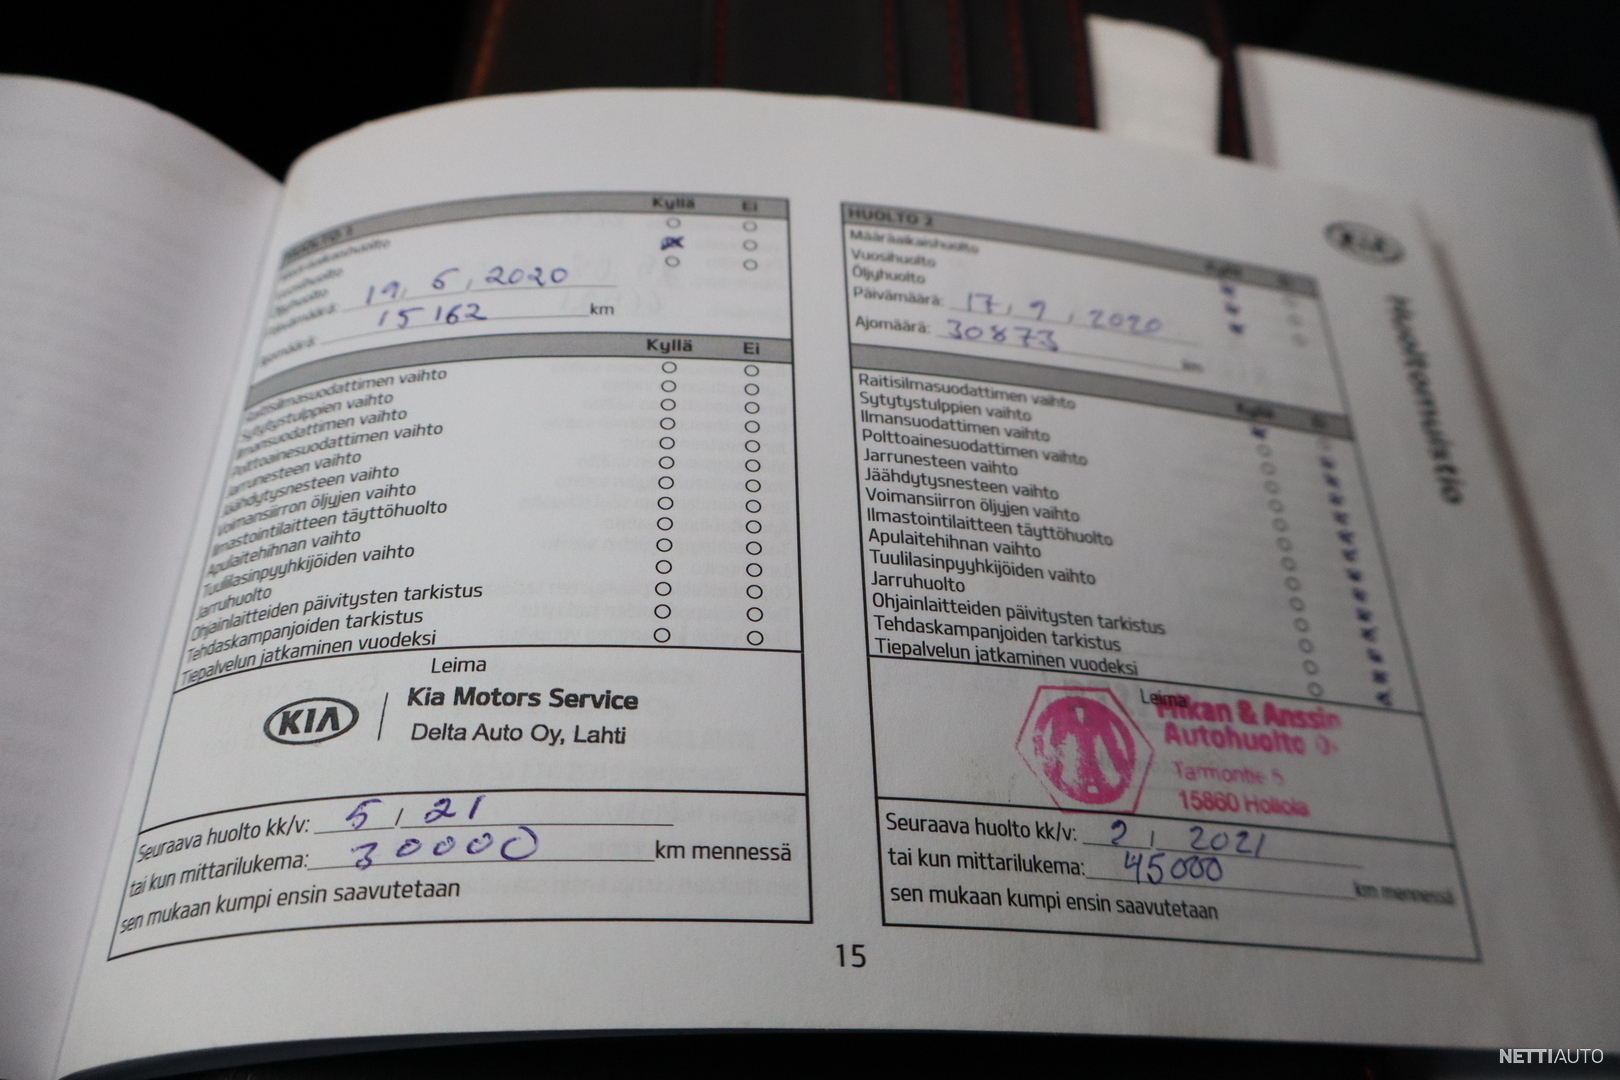 HUOLTO 1 Kyllä Ei
Määräaikaishuolto
Vuosihuolto
Öljyhuolto
Päivämäärä: 19, 5, 2020
Ajomäärä: 15162 km
Kyllä Ei
Raitisilmasuodattimen vaihto
Sytytystulppien vaihto
Ilmansuodattimen vaihto
Polttoainesuodattimen vaihto
Jarrunesteen vaihto
Jäähdytysnesteen vaihto
Voimansiirron öljyjen vaihto
Ilmastointilaitteen täyttöhuolto
Apulaitehihnan vaihto
Tuulilasinpyyhkijöiden vaihto
Jarruhuolto
Ohjainlaitteiden päivitysten tarkistus
Tehdaskampanjoiden tarkistus
Tiepalvelun jatkaminen vuodeksi
Leima
KIA Kia Motors Service
Delta Auto Oy, Lahti
Seuraava huolto kk/v: 5 / 21
tai kun mittarilukema: 30000 km mennessä
sen mukaan kumpi ensin saavutetaan
HUOLTO 2 Kyllä Ei
Määräaikaishuolto
Vuosihuolto
Öljyhuolto
Päivämäärä: 17, 9, 2020
Ajomäärä: 30873 km
Kyllä Ei
Raitisilmasuodattimen vaihto
Sytytystulppien vaihto
Ilmansuodattimen vaihto
Polttoainesuodattimen vaihto
Jarrunesteen vaihto
Jäähdytysnesteen vaihto
Voimansiirron öljyjen vaihto
Ilmastointilaitteen täyttöhuolto
Apulaitehihnan vaihto
Tuulilasinpyyhkijöiden vaihto
Jarruhuolto
Ohjainlaitteiden päivitysten tarkistus
Tehdaskampanjoiden tarkistus
Tiepalvelun jatkaminen vuodeksi
Leima
& Anssin
Autohuolto
Tarmontie 5
15860 Hollola
Seuraava huolto kk/v: 2 / 2021
tai kun mittarilukema: 45000 km mennessä
sen mukaan kumpi ensin saavutetaan
KIA
Huoltomuistio
15
NETTIAUTO